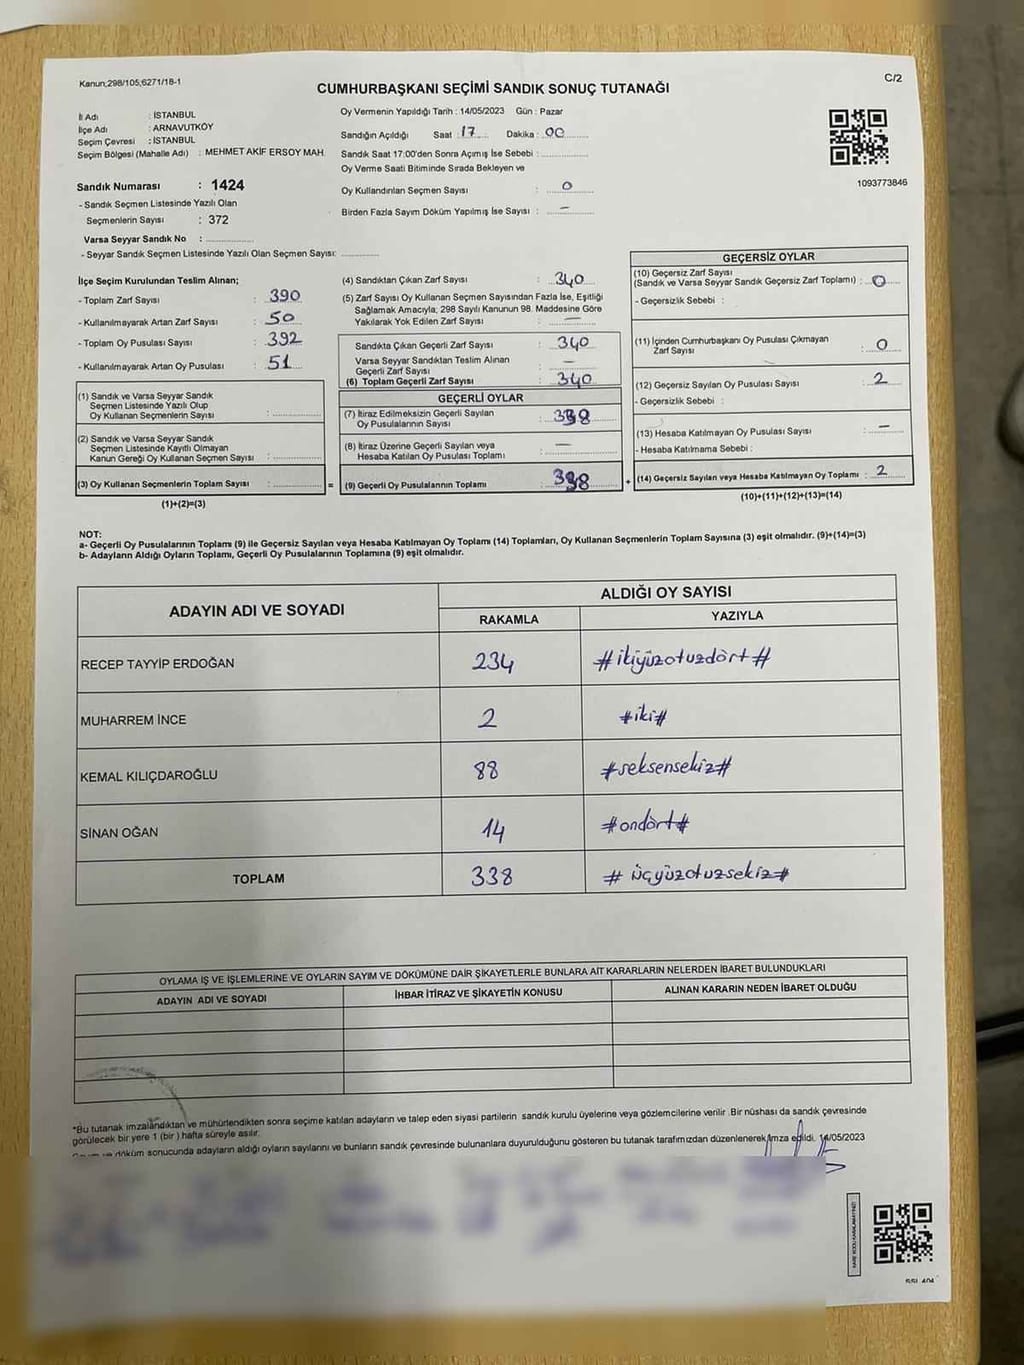 Kanun;298/105;6271/18-1
C/2
CUMHURBAŞKANI SEÇİMİ SANDIK SONUÇ TUTANAĞI
İl Adı : İSTANBUL
İlçe Adı : ARNAVUTKÖY
Seçim Çevresi : İSTANBUL
Seçim Bölgesi (Mahalle Adı) : MEHMET AKİF ERSOY MAH.
Sandık Numarası : 1424
- Sandık Seçmen Listesinde Yazılı Olan
Seçmenlerin Sayısı : 372
Varsa Seyyar Sandık No :
- Seyyar Sandık Seçmen Listesinde Yazılı Olan Seçmen Sayısı:
Oy Vermenin Yapıldığı Tarih : 14/05/2023 Gün : Pazar
Sandığın Açıldığı Saat : 17 Dakika : 00
Sandık Saat 17:00'den Sonra Açımış İse Sebebi :
Oy Verme Saati Bitiminde Sırada Bekleyen ve
Oy Kullandırılan Seçmen Sayısı : 0
Birden Fazla Sayım Döküm Yapılmış İse Sayısı : —
1093773846
İlçe Seçim Kurulundan Teslim Alınan;
- Toplam Zarf Sayısı : 390
- Kullanılmayarak Artan Zarf Sayısı : 50
- Toplam Oy Pusulası Sayısı : 392
- Kullanılmayarak Artan Oy Pusulası : 51
(1) Sandık ve Varsa Seyyar Sandık
Seçmen Listesinde Yazılı Olup
Oy Kullanan Seçmenlerin Sayısı :
(2) Sandık ve Varsa Seyyar Sandık
Seçmen Listesinde Kayıtlı Olmayan
Kanun Gereği Oy Kullanan Seçmen Sayısı :
(3) Oy Kullanan Seçmenlerin Toplam Sayısı :
(1)+(2)=(3)
(4) Sandıktan Çıkan Zarf Sayısı : 340
(5) Zarf Sayısı Oy Kullanan Seçmen Sayısından Fazla İse, Eşitliği
Sağlamak Amacıyla; 298 Sayılı Kanunun 98. Maddesine Göre
Yakılarak Yok Edilen Zarf Sayısı : —
Sandıkta Çıkan Geçerli Zarf Sayısı : 340
Varsa Seyyar Sandıktan Teslim Alınan
Geçerli Zarf Sayısı : —
(6) Toplam Geçerli Zarf Sayısı : 340
GEÇERLİ OYLAR
(7) İtiraz Edilmeksizin Geçerli Sayılan
Oy Pusulasının Sayısı : 338
(8) İtiraz Üzerine Geçerli Sayılan veya
Hesaba Katılan Oy Pusulası Toplamı : —
= (9) Geçerli Oy Pusulalarının Toplamı : 338
GEÇERSİZ OYLAR
(10) Geçersiz Zarf Sayısı
(Sandık ve Varsa Seyyar Sandık Geçersiz Zarf Toplamı) : 0
- Geçersizlik Sebebi :
(11) İçinden Cumhurbaşkanı Oy Pusulası Çıkmayan
Zarf Sayısı : 0
(12) Geçersiz Sayılan Oy Pusulası Sayısı : 2
- Geçersizlik Sebebi :
(13) Hesaba Katılmayan Oy Pusulası Sayısı : —
- Hesaba Katılmama Sebebi :
+ (14) Geçersiz Sayılan veya Hesaba Katılmayan Oy Toplamı : 2
(10)+(11)+(12)+(13)=(14)
NOT:
a- Geçerli Oy Pusulalarının Toplamı (9) ile Geçersiz Sayılan veya Hesaba Katılmayan Oy Toplamı (14) Toplamları, Oy Kullanan Seçmenlerin Toplam Sayısına (3) eşit olmalıdır. (9)+(14)=(3)
b- Adayların Aldığı Oyların Toplamı, Geçerli Oy Pusulalarının Toplamına (9) eşit olmalıdır.
ADAYIN ADI VE SOYADI
ALDIĞI OY SAYISI
RAKAMLA YAZIYLA
RECEP TAYYİP ERDOĞAN 234 #ikiyüzotuzdört#
MUHARREM İNCE 2 #iki#
KEMAL KILIÇDAROĞLU 88 #seksensekiz#
SİNAN OĞAN 14 #ondört#
TOPLAM 338 #üçyüzotuzsekiz#
OYLAMA İŞ VE İŞLEMLERİNE VE OYLARIN SAYIM VE DÖKÜMÜNE DAİR ŞİKAYETLERLE BUNLARA AİT KARARLARIN NELERDEN İBARET BULUNDUKLARI
ADAYIN ADI VE SOYADI İHBAR İTİRAZ VE ŞİKAYETİN KONUSU ALINAN KARARIN NEDEN İBARET OLDUĞU
*Bu tutanak imzalandıktan ve mühürlendikten sonra seçime katılan adayların ve talep eden siyasi partilerin sandık kurulu üyelerine veya gözlemcilerine verilir .Bir nüshası da sandık çevresinde
görülecek bir yere 1 (bir ) hafta süreyle asılır.
döküm sonucunda adayların aldığı oyların sayılarını ve bunların sandık çevresinde bulunanlara duyurulduğunu gösteren bu tutanak tarafımızdan düzenlenerek imza edildi. 14/05/2023